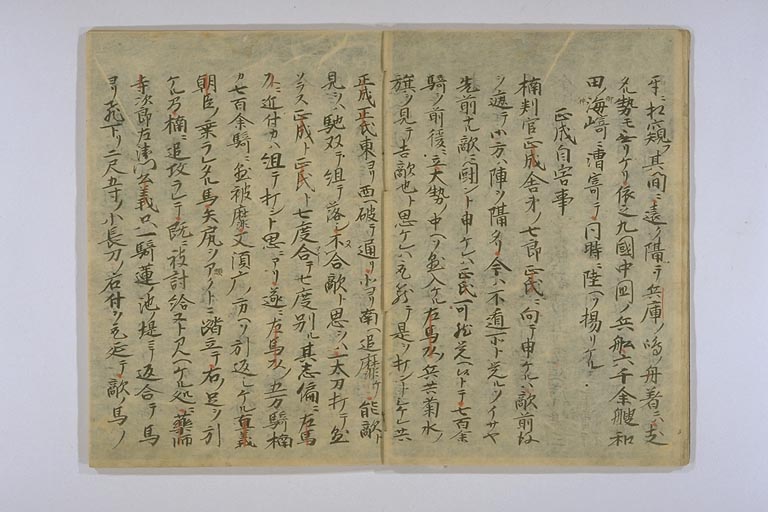 其間ニ遠ク隔テ兵庫ノ嶋ノ舟着ニハ支
タル勢モ無リケリ依之九國中国ノ兵船六千余艘和
田ノ海崎ニ漕寄テ同時ニ陸ヘソ揚リケル
正成自害事
楠判官正成舎弟ノ七郎正氏ニ向テ申ケルハ敵前後
ヲ遮テ御方ハ陣ヲ隔タリ今ハ不遁ト覚ルソイサヤ
先前ナル敵ニ闘ント申ケレハ正氏可然覚ヘ候トテ七百余
騎ヲ前後ニ立大勢ノ中ヘソ懸入ケル左馬頭ノ兵共菊水ノ
旗ヲ見テ吉敵也ト思ケレハ取籠テ是ヲ打ントシケレ共
正成正氏東ヨリ西ヘ破テ通リ北ヨリ南ヘ追靡ケ能敵ト
見シハ馳双テ組テ落シ不合敵ト思シハ一太刀打テ懸
ソラス正成ト正氏ト七度合テ七度別ル其志偏ニ左馬
頭ニ近付カハ組テ打ント思ニアリ遂ニ左馬頭ノ五万騎楠
カ七百余騎ニ被懸靡又須磨ノ方ヘソ引返シケル直義
朝臣ノ乗ラレタル馬矢尻ヲ踏立テ右ノ足ヲ引
ケル乃楠ニ追攻ラレテ既ニ被討給ヌト見ヘケル処ニ薬師
寺次郎左衛門公義只一騎蓮ノ池ノ堤ニテ返合テ馬
ヨリ飛下リ二尺五寸ノ小長刀ノ石付ヲ取延テ敵ノ馬ノ